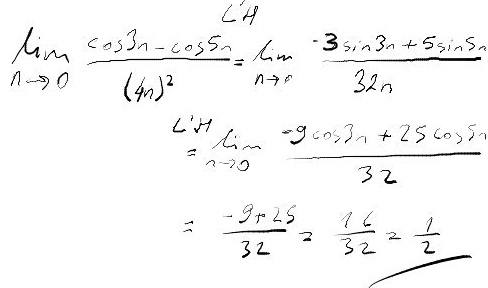 L'H
lim n→0 (cos3n - cos5n)/(4n)² = lim n→0 (-3sin3n + 5sin5n)/32n
L'H = lim n→0 (-9cos3n + 25cos5n)/32
= (-9+25)/32 = 16/32 = 1/2